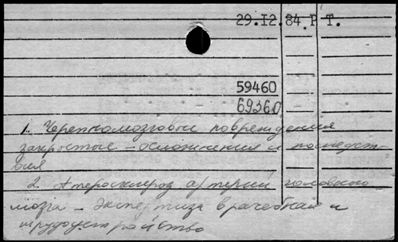 29.12.84. Р Т.
59460
69360
1. Черепномозговые повреждения
закрытые - осложнения и последст-
вия
2. Атеросклероз артерий головного
мозга - экспертиза врачебная и
трудоустройство